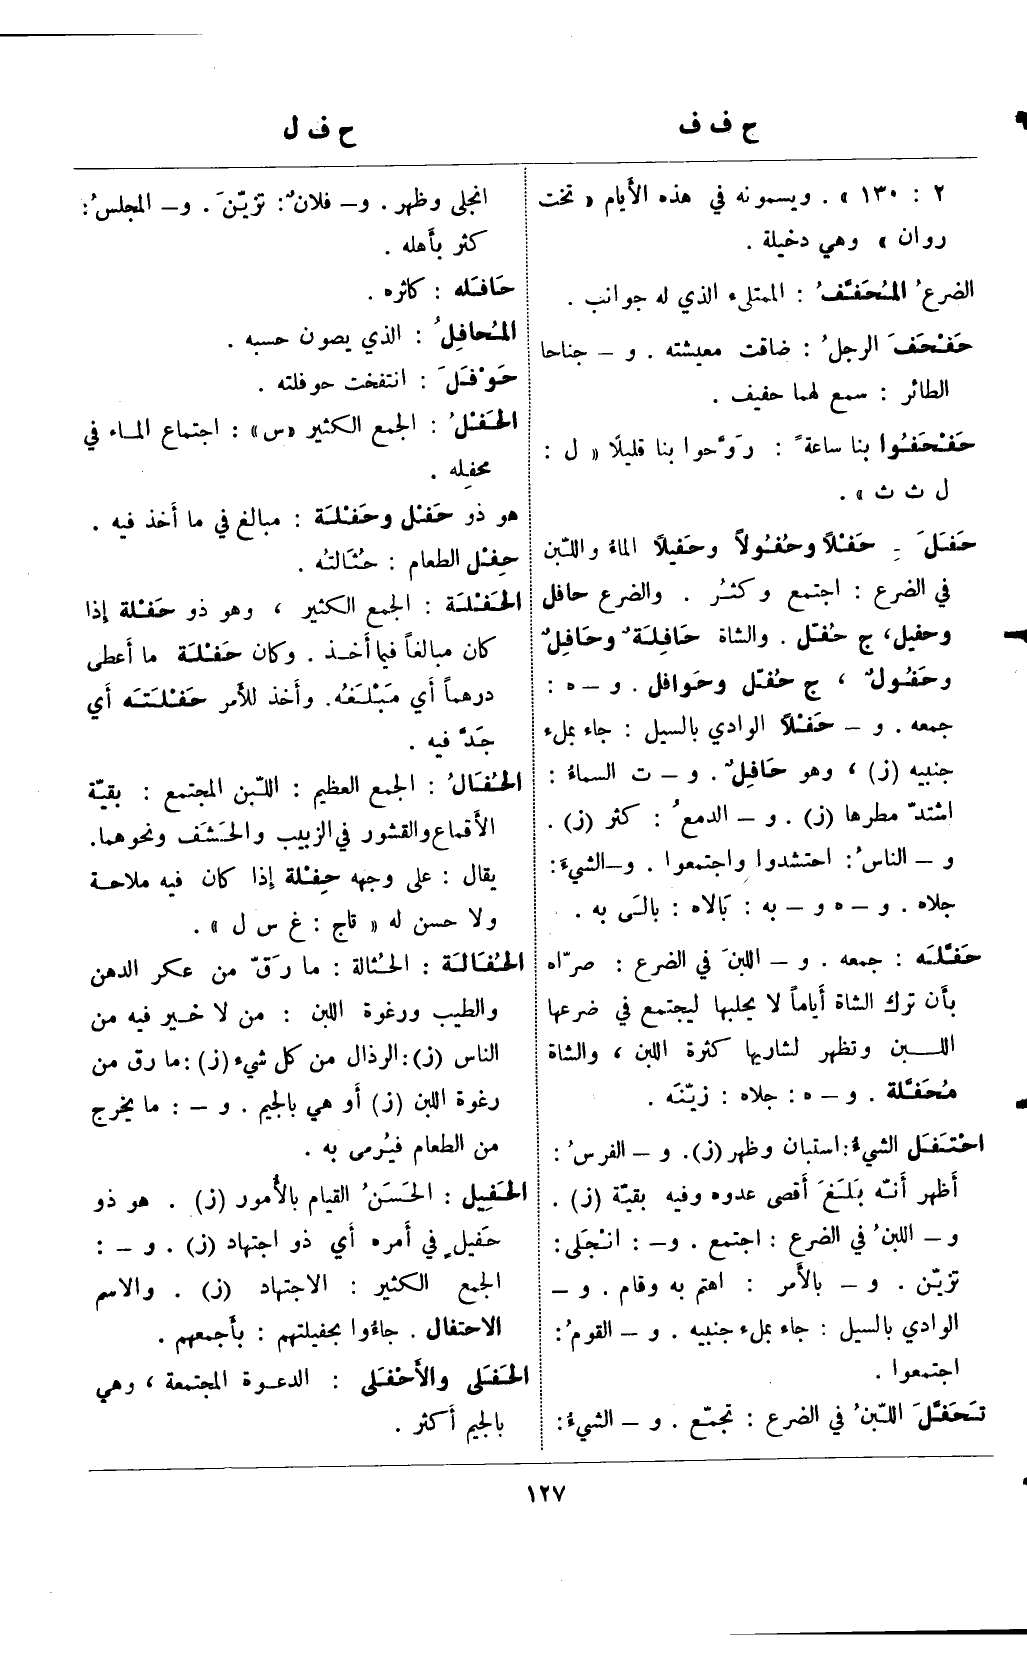 ح ف ف
ح ف ل
٢ : ١٣٠ » . ويسمونه في هذه الأيام « تخت
روان » وهي دخيلة .
الضرعُ المُحَفَّفُ : الممتلىء الذي له جوانب .
حَفْحَفَ الرجلُ : ضاقت معيشته . و – جناحا
الطائر : سمع لهما حفيف .
حَفْحَفُوا بنا ساعةً : رَوَّحوا بنا قليلًا « ل :
ل ث ث » .
حَفَلَ ـِ حَفْلاً وحُفُولاً وحَفيلاً الماءُ واللّبن
في الضرع : اجتمع وكثُر . والضرع حافل
وحفيل، ج حُفَّل . والشاة حَافِلَةٌ وحَافِلٌ
وحَفُولٌ ، ج حُفَّل وحَوافل . و – ه :
جمعه . و – حَفْلاً الوادي بالسيل : جاء بملء
جنبيه (ز) ، وهو حَافِلٌ . و – ت السماءُ :
اشتدّ مطرها (ز) . و – الدمعُ : كثر (ز) .
و – الناسُ : احتشدوا واجتمعوا . و–الشيءَ :
جلاه . و – ه و – به : بَالاه : بالَى به .
حَفَّلَه : جمعه . و – اللبنَ في الضرع : صرّاه
بأن ترك الشاة أياماً لا يحلبها ليجتمع في ضرعها
اللـبن وتظهر لشاريها كثرة اللبن ، والشاة
مُحَفَّلة . و – ه : جلاه : زيّنَه .
احْتَفَل الشيءُ : استبان وظهر (ز) . و – الفرسُ :
أظهر أنّه بَلَغَ أقصى عدوه وفيه بقيّة (ز) .
و – اللبنُ في الضرع : اجتمع . و– : انْجَلى :
تزيّن . و – بالأمر : اهتم به وقام . و –
الوادي بالسيل : جاء بملء جنبيه . و – القومُ :
اجتمعوا .
تَحَفَّلَ اللّبنُ في الضرع : تجمّع . و – الشيءُ :
انجلى وظهر . و– فلانٌ : تزيّنَ . و– المجلسُ :
كثر بأهله .
حَافَله : كاثره .
المُحافِلُ : الذي يصون حسبه .
حَوْفَلَ : انتفخت حوفلته .
الحَفْلُ : الجمع الكثير «س» : اجتماع الماء في
محفِله .
هو ذو حَفْل وحَفْلَة : مبالغ في ما أخذ فيه .
حِفْل الطعام : حُثَالتُه .
الحَفْلَة : الجمع الكثير ، وهو ذو حَفْلة إذا
كان مبالغاً فيما أخـذ . وكان حَفْلَة ما أعطى
درهماً أي مَبْلَغُه . وأخذ للأمر حَفْلَتَه أي
جَدَّ فيه .
الحُفَالُ : الجمع العظيم : اللّبن المجتمع : بقيّة
الأقماع والقشور في الزبيب والحَشَف ونحوهما .
يقال : على وجهه حِفْلة إذا كان فيه ملاحة
ولا حسن له « تاج : غ س ل » .
الحُفَالَة : الحُثالة : ما رَقّ من عكر الدهن
والطيب ورغوة اللبن : من لا خـير فيه من
الناس (ز) : الرذال من كل شيء (ز) : ما رق من
رغوة اللبن (ز) أو هي بالجيم . و – : ما يخرج
من الطعام فيُرمى به .
الحَفِيل : الحَسَنُ القيام بالأُمور (ز) . هو ذو
حَفيلٍ في أمره أي ذو اجتهاد (ز) . و – :
الجمع الكثير : الاجتهاد (ز) . والاسم
الاحتفال . جاءُوا بحفيلتهم : بأجمعهم .
الحَفَلى والأَحْفَلى : الدعـوة المجتمعة ، وهي
بالجيم أكثر .
١٢٧